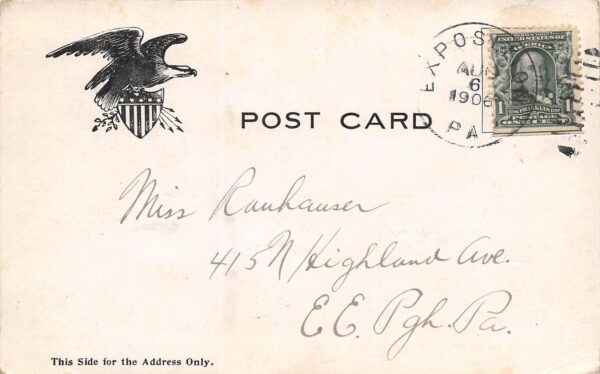 EXPOS
AUG
6
1906
PA
SERIES 1902
UNITED STATES OF
AMERICA
FRANKLIN
1 1
POSTAGE
ONE CENT
POST CARD
Miss Rauhauser
415 N Highland Ave.
E.E. Pgh. Pa.
This Side for the Address Only.